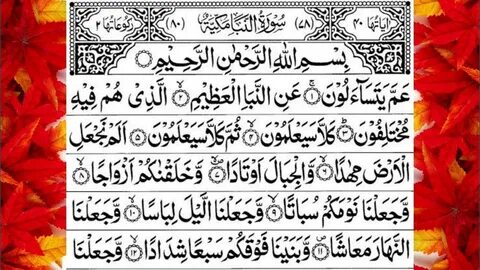 اٰیاتها ۴۰ (۷۸) سُوْرَةُ النَّبَاِ مَكِّیَّةٌ (۸۰) رکوعاتها ۲
بِسْمِ اللّٰهِ الرَّحْمٰنِ الرَّحِیْمِ
عَمَّ یَتَسَآءَلُوْنَ ۱ عَنِ النَّبَاِ الْعَظِیْمِ ۲ الَّذِیْ هُمْ فِیْهِ
مُخْتَلِفُوْنَ ۳ كَلَّا سَیَعْلَمُوْنَ ۴ ثُمَّ كَلَّا سَیَعْلَمُوْنَ ۵ اَلَمْ نَجْعَلِ
الْاَرْضَ مِهٰدًا ۶ وَّالْجِبَالَ اَوْتَادًا ۷ وَّخَلَقْنٰكُمْ اَزْوَاجًا ۸
وَّجَعَلْنَا نَوْمَكُمْ سُبَاتًا ۹ وَّجَعَلْنَا الَّیْلَ لِبَاسًا ۱۰ وَّجَعَلْنَا
النَّهَارَ مَعَاشًا ۱۱ وَّبَنَیْنَا فَوْقَكُمْ سَبْعًا شِدَادًا ۱۲ وَّجَعَلْنَا